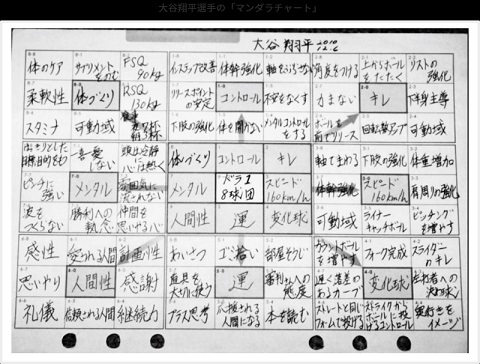 大谷翔平選手の「マンダラチャート」
大谷 翔平
体のケア サプリメントをのむ FSQ 90kg インステップ改善 体幹強化 軸をぶらさない 角度をつける 上からボールをたたく リストの強化
柔軟性 体づくり RSQ 130kg リリースポイントの安定 コントロール 不安をなくす 力まない キレ 下半身主導
スタミナ 可動域 下肢の強化 体を開かない メンタルコントロールをする ボールを前でリリース 回転数アップ 可動域
一喜一憂しない 体づくり コントロール キレ 軸でまわる 下肢の強化 体重増加
ピンチに強い メンタル 雰囲気に流されない メンタル ドラ1 8球団 スピード 160km/h 体幹強化 スピード 160km/h 肩周りの強化
波をつくらない 勝利への執念 仲間を思いやる心 人間性 運 変化球 可動域 ライナーキャッチボール ピッチングを増やす
感性 愛される人間 計画性 あいさつ ゴミ拾い 部屋そうじ カウントボールを増やす フォーク完成 スライダーのキレ
思いやり 人間性 感謝 道具を大切に使う 運 審判さんへの態度 遅く落差のあるカーブ 変化球 左打者への決め球
礼儀 信頼される人間 継続力 プラス思考 応援される人間になる 本を読む ストレートと同じフォームで投げる ストライクからボールに投げるコントロール 奥行きをイメージ